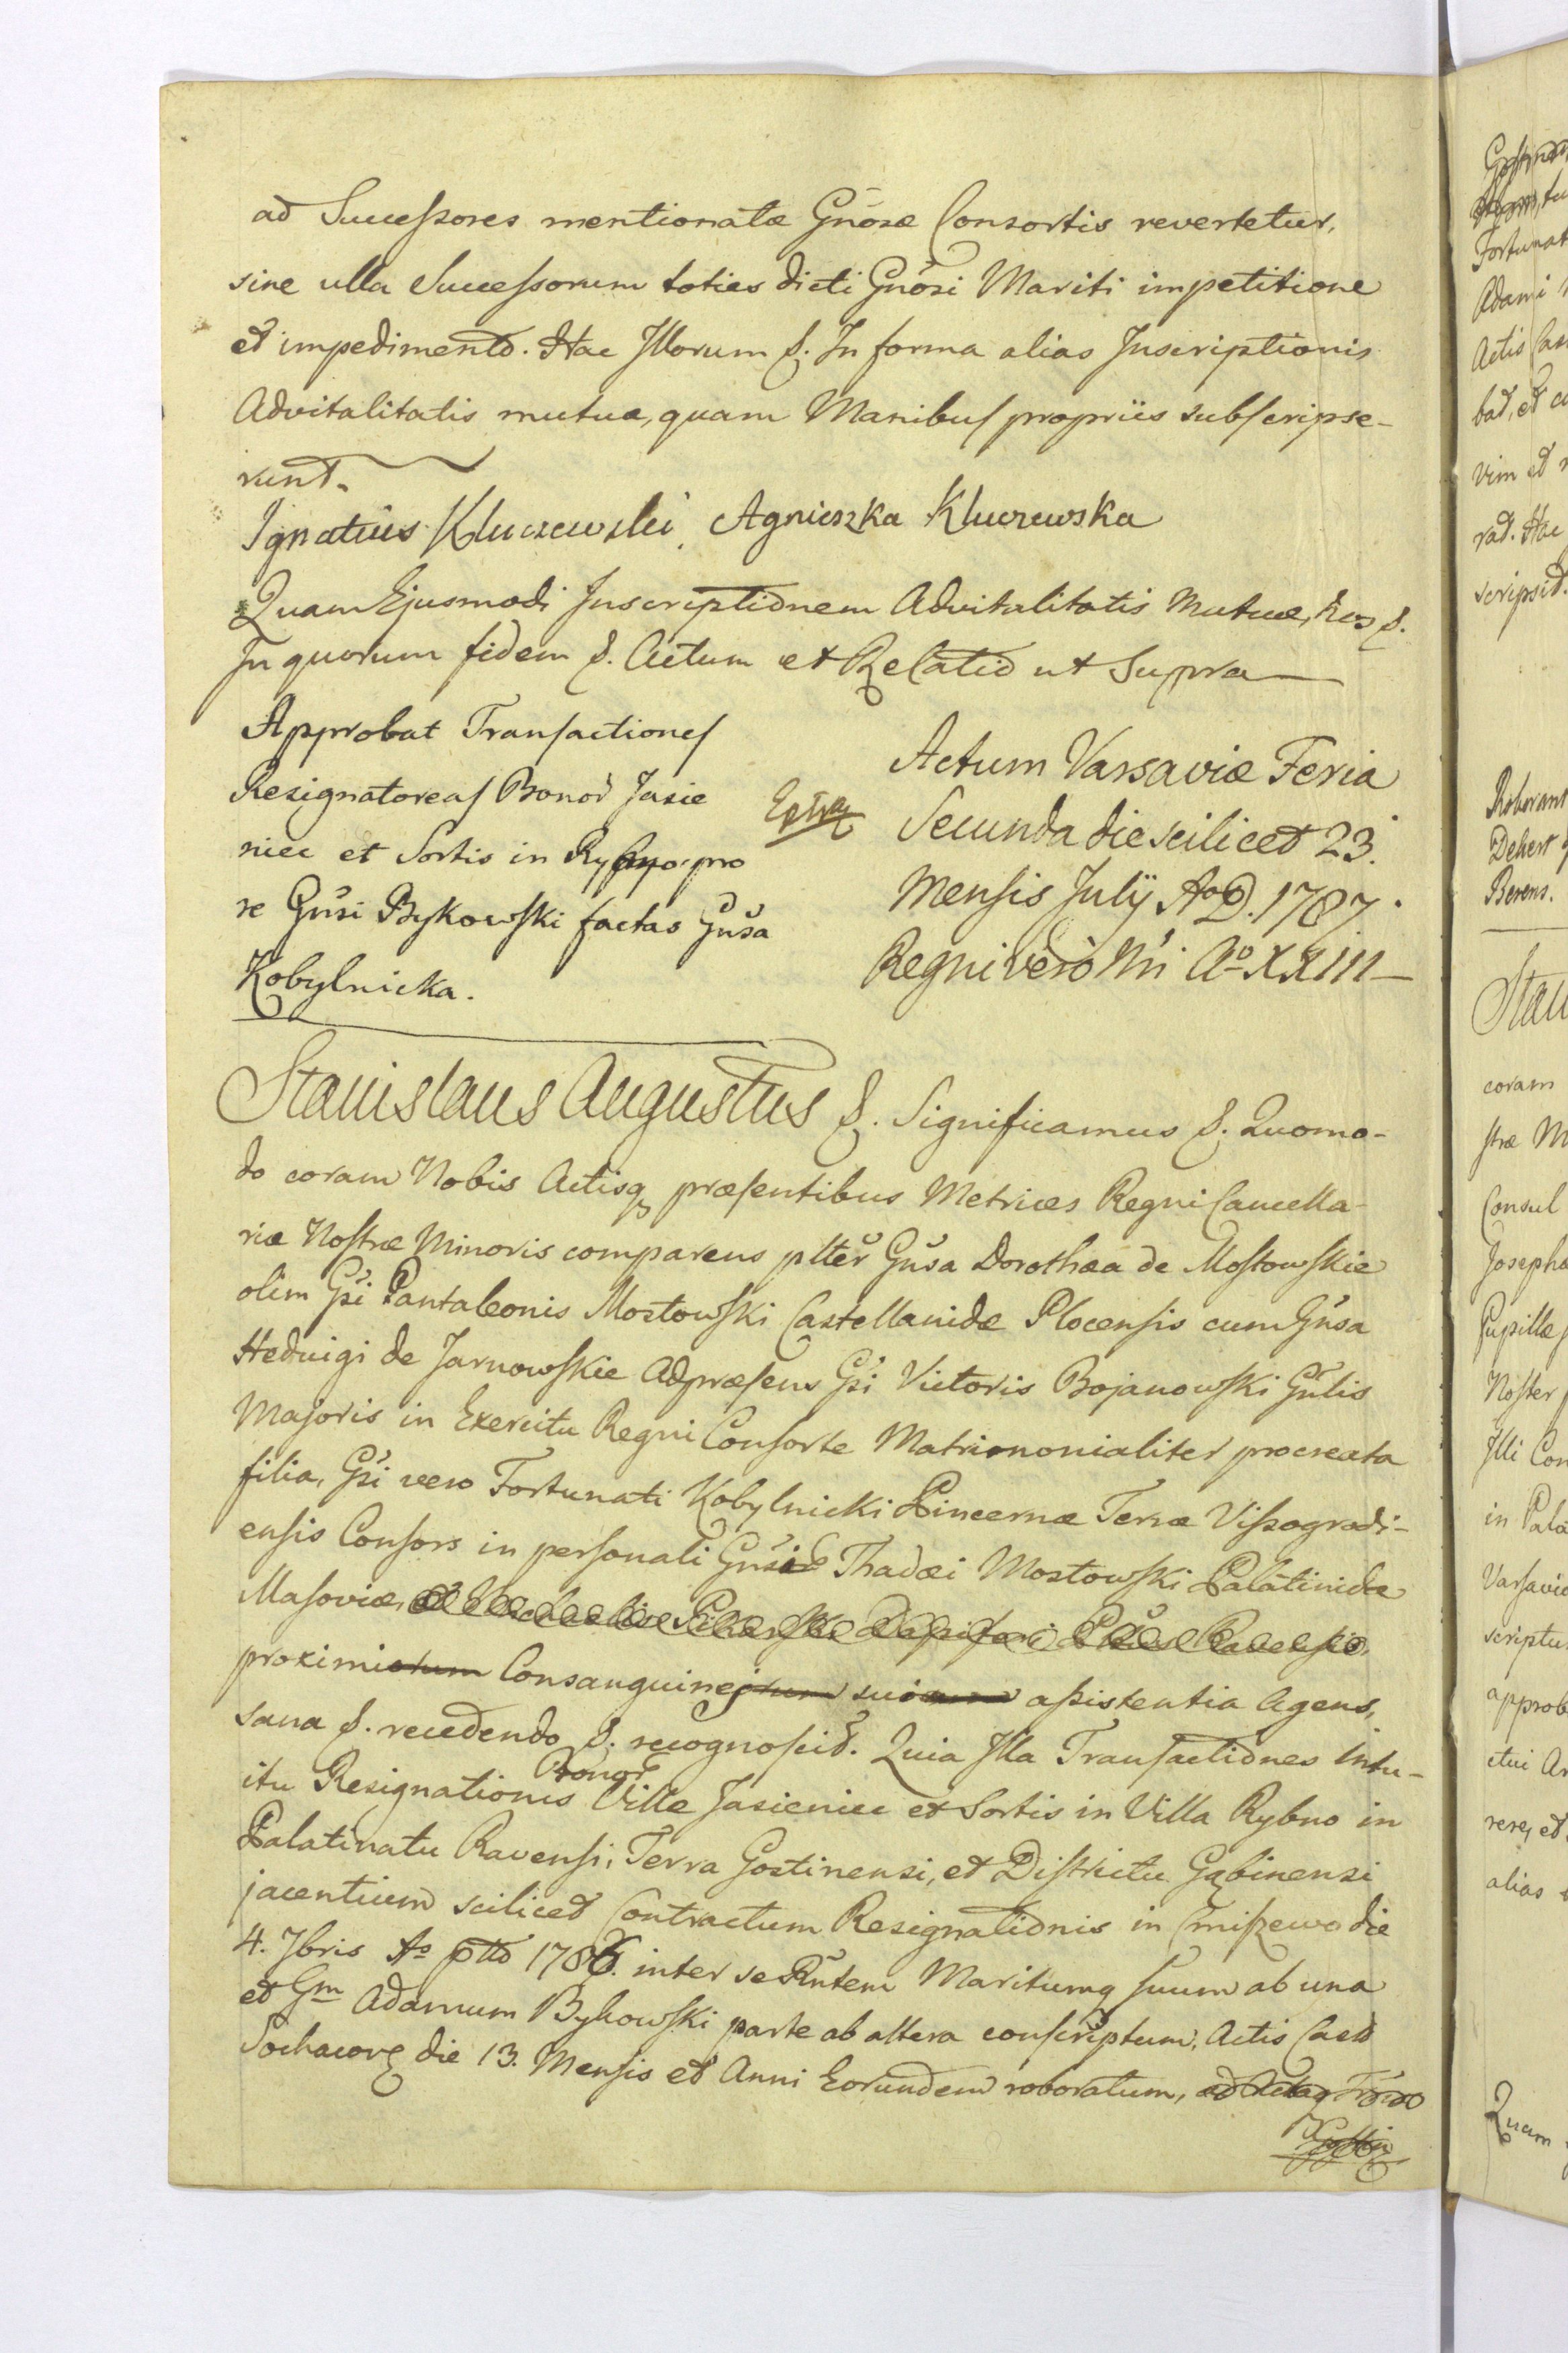 ad Successores mentionatæ Gnosæ Consortis revertetur,
sine ulla Successorum toties dicti Gnosi Mariti impetitione
et impedimento. Hac Illorum &. In forma alias Inscriptionis
Advitalitatis mutuæ, quam Manibus propriis subscripse-
runt.
Ignatius Kluczewski, Agnieszka Kluczewska
Quam Ejusmodi Inscriptionem Advitalitatis Mutuæ, Nos &.
In quorum fidem &. Actum et Relatio ut Supra
Approbat Transactiones
Resignatoreas Bonor Jasie
niec et Sortis in Rybno pro
re Gnsi Bykowski factas Gnsa
Kobylnicka.
Actum Varsaviæ Feria
Secunda die scilicet 23.
Mensis Julÿ AoD. 1787.
Regni vero Nri Ao XXIII
Stanislaus Augustus &. Significamus &. Quomo-
do coram Nobis Actisq præsentibus Metrices Regni Cancella-
riæ Nostræ Minoris comparens plter Gnsa Dorothæa de Mostowskie
olim Gsi Pantaleonis Mostowski Castellanidæ Plocensis cum Gnsa
Heduigi de Jarnowskie Adpræsens Gsi Victoris Bojanowski Gnlis
Majoris in Exercitu Regni Consorte Matrimonialiter procreata
filia, Gsi vero Fortunati Kobylnicki Pincernæ Terræ Viszogradi-
ensis Consors in personali Gnsi Thadæi Mostowski Palatinidæ
Masoviæ,
proximiorum Consanguineorum suorum assistentia Agens,
sana &. recedendo &. recognoscit. Quia Illa Transactiones Intu-
Bonor
itu Resignationis Villæ Jasieniec et Sortis in Villa Rybno in
Palatinatu Ravensi, Terra Gostinensi, et Districtu Gąbinensi
jacentium scilicet Contractum Resignationis in Cmiszewo die
4. 7bris Ao ptto 1786. inter se Rntem Maritumq suum ab una
et Gm Adamum Bykowski parte ab altera conscriptum, Actis Cast
Sochacov die 13. Mensis et Anni Eorundem roboratum,